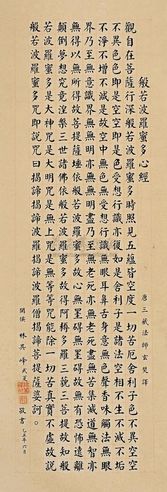 般若波羅蜜多心經
唐三藏法師玄奘譯
觀自在菩薩行深般若波羅蜜多時照見五蘊皆空度一切苦厄舍利子色不異空空
不異色色即是空空即是色受想行識亦復如是舍利子是諸法空相不生不滅不垢
不淨不增不減是故空中無色無受想行識無眼耳鼻舌身意無色聲香味觸法無眼
界乃至無意識界無無明亦無無明盡乃至無老死亦無老死盡無苦集滅道無智亦
無得以無所得故菩提薩埵依般若波羅蜜多故心無罣礙無罣礙故無有恐怖遠離
顛倒夢想究竟涅槃三世諸佛依般若波羅蜜多故得阿耨多羅三藐三菩提故知般
若波羅蜜多是大神咒是大明咒是無上咒是無等等咒能除一切苦真實不虛故說
般若波羅蜜多咒即說咒曰揭諦揭諦波羅揭諦波羅僧揭諦菩提薩婆訶
林其峰 敬書